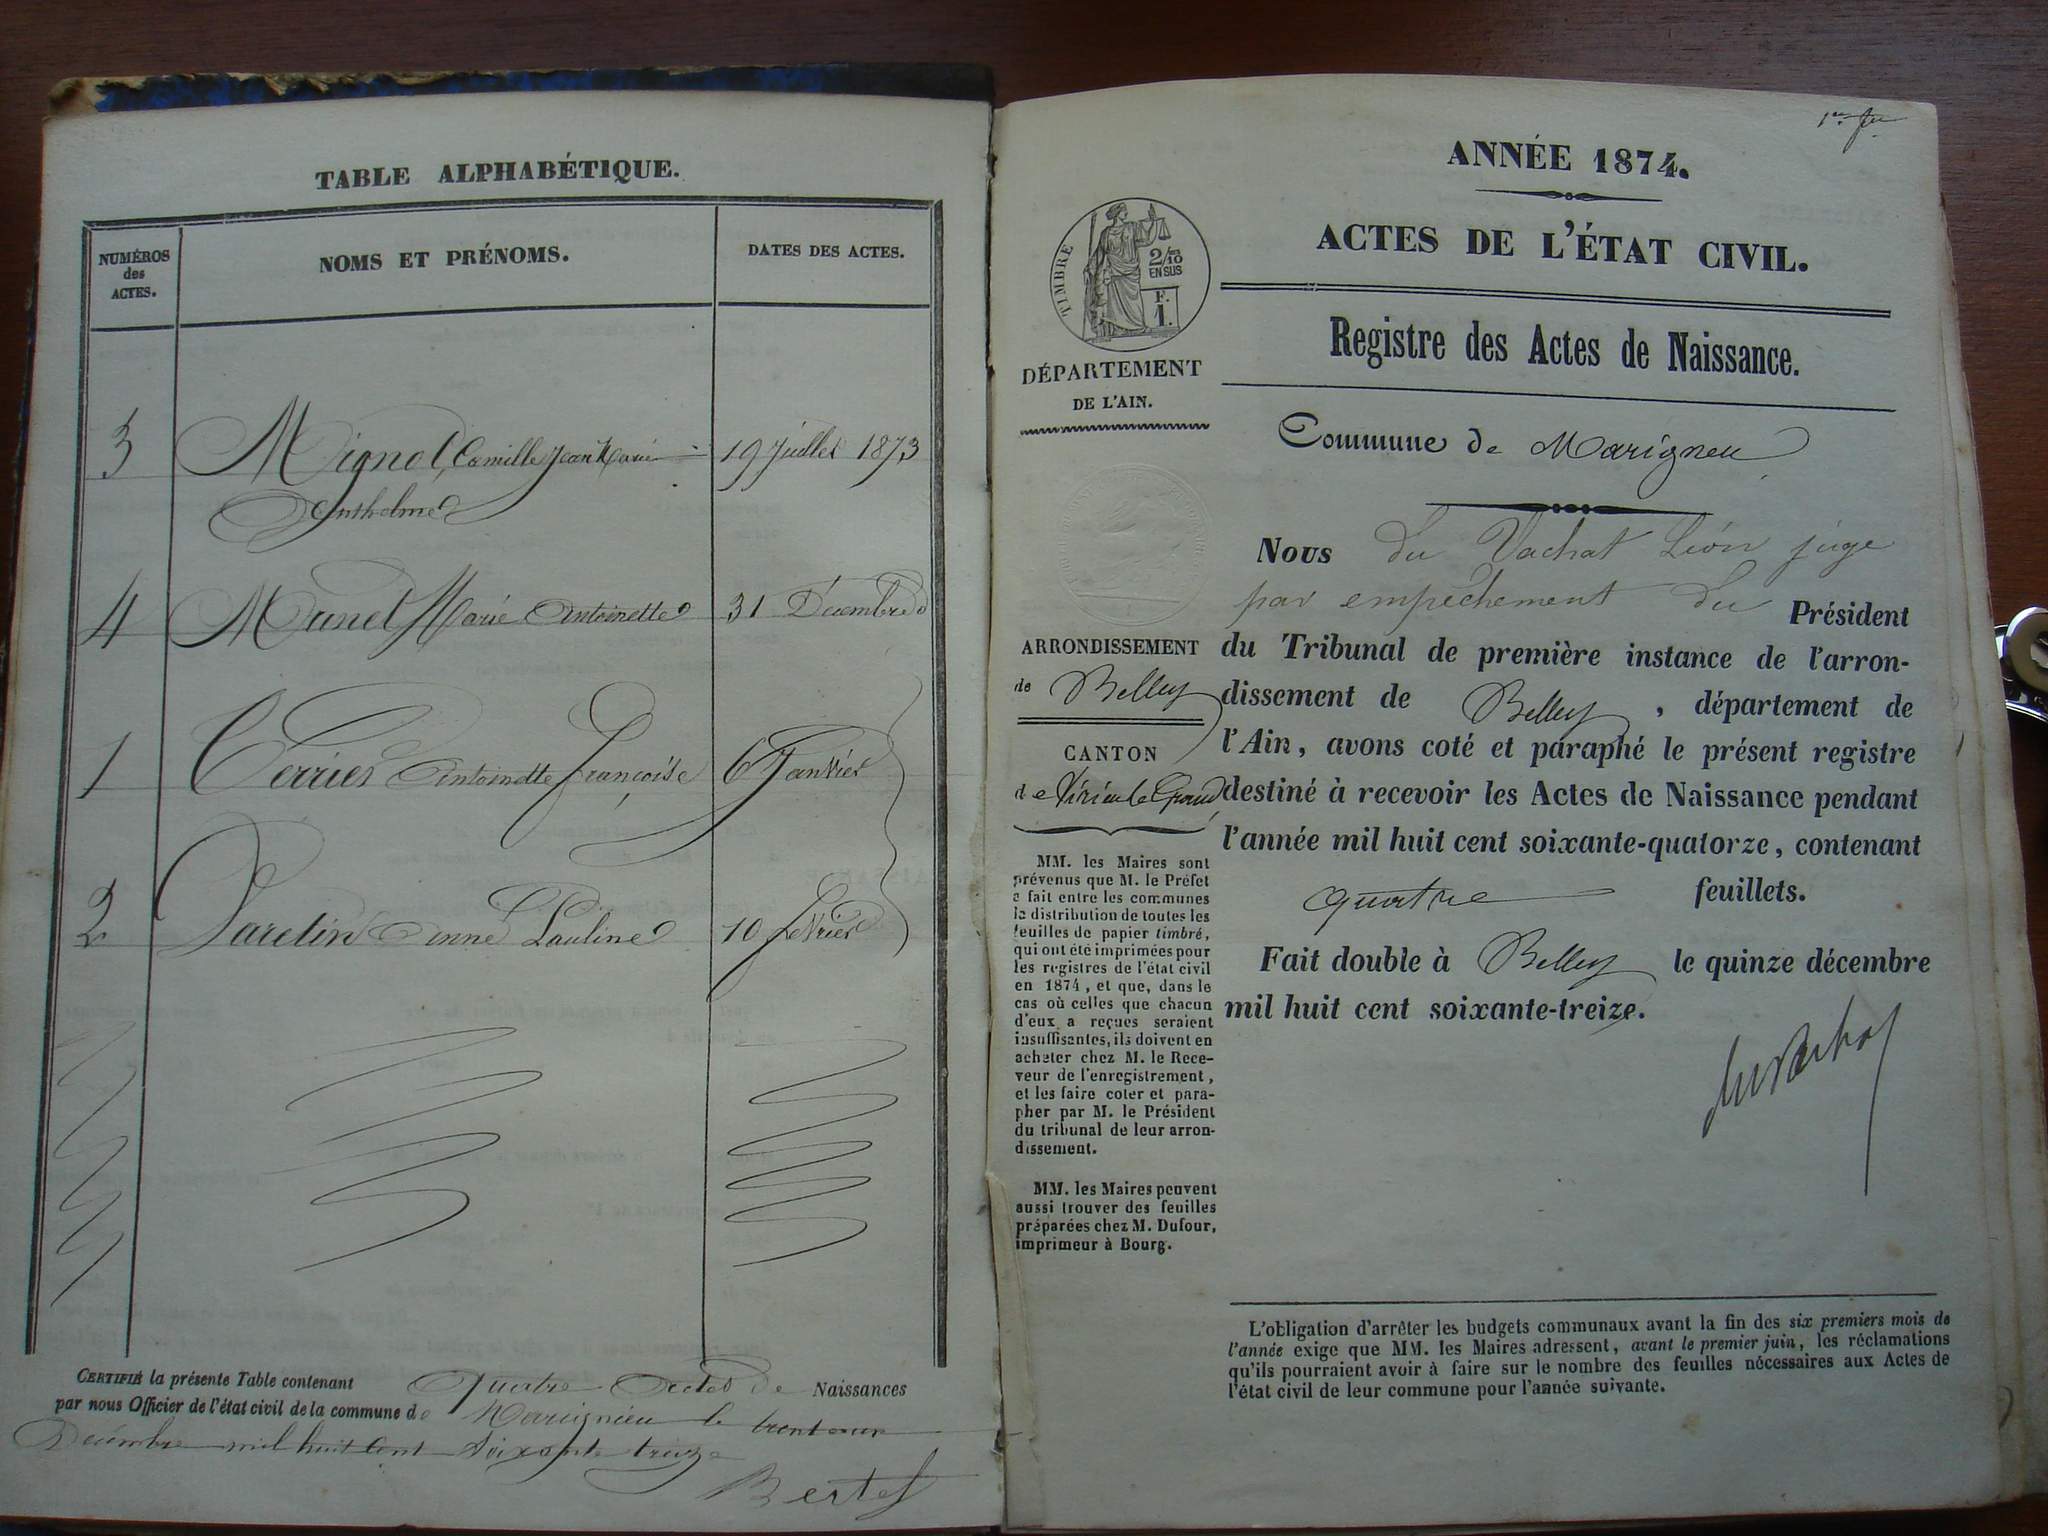 TABLE ALPHABÉTIQUE.
NUMÉROS
des
ACTES.
NOMS ET PRÉNOMS.
DATES DES ACTES.
3 Mignot, Camille Jean Marie 19 Juillet 1873
Anthelme
4 Munet Marie Antoinette 31 Décembre
1 Terrier Antoinette Françoise 6 Janvier
2 Anne Pauline 10 Février
CERTIFIÉ la présente Table contenant Quatre Actes de Naissances
par nous Officier de l'état civil de la commune de Marignieu le trente un
Décembre mil huit cent soixante treize
Bertet
1er fet
ANNÉE 1874.
ACTES DE L'ÉTAT CIVIL.
Registre des Actes de Naissance.
Commune de Marigneu
TIMBRE
2/10
EN SUS
F.
1.
DÉPARTEMENT
DE L'AIN.
ARRONDISSEMENT
de Belley
CANTON
de Virieu le Grand
MM. les Maires sont
prévenus que M. le Préfet
a fait entre les communes
la distribution de toutes les
feuilles de papier timbré,
qui ont été imprimées pour
les registres de l'état civil
en 1874, et que, dans le
cas où celles que chacun
d'eux a reçues seraient
insuffisantes, ils doivent en
acheter chez M. le Rece-
veur de l'enregistrement,
et les faire coter et para-
pher par M. le Président
du tribunal de leur arron-
dissement.
MM. les Maires peuvent
aussi trouver des feuilles
préparées chez M. Dufour,
imprimeur à Bourg.
Nous du Vachat Léon juge
par empêchement du Président
du Tribunal de première instance de l'arron-
dissement de Belley, département de
l'Ain, avons coté et paraphé le présent registre
destiné à recevoir les Actes de Naissance pendant
l'année mil huit cent soixante-quatorze, contenant
quatre feuillets.
Fait double à Belley le quinze décembre
mil huit cent soixante-treize.
du Vachat
L'obligation d'arrêter les budgets communaux avant la fin des six premiers mois de
l'année exige que MM. les Maires adressent, avant le premier juin, les réclamations
qu'ils pourraient avoir à faire sur le nombre des feuilles nécessaires aux Actes de
l'état civil de leur commune pour l'année suivante.